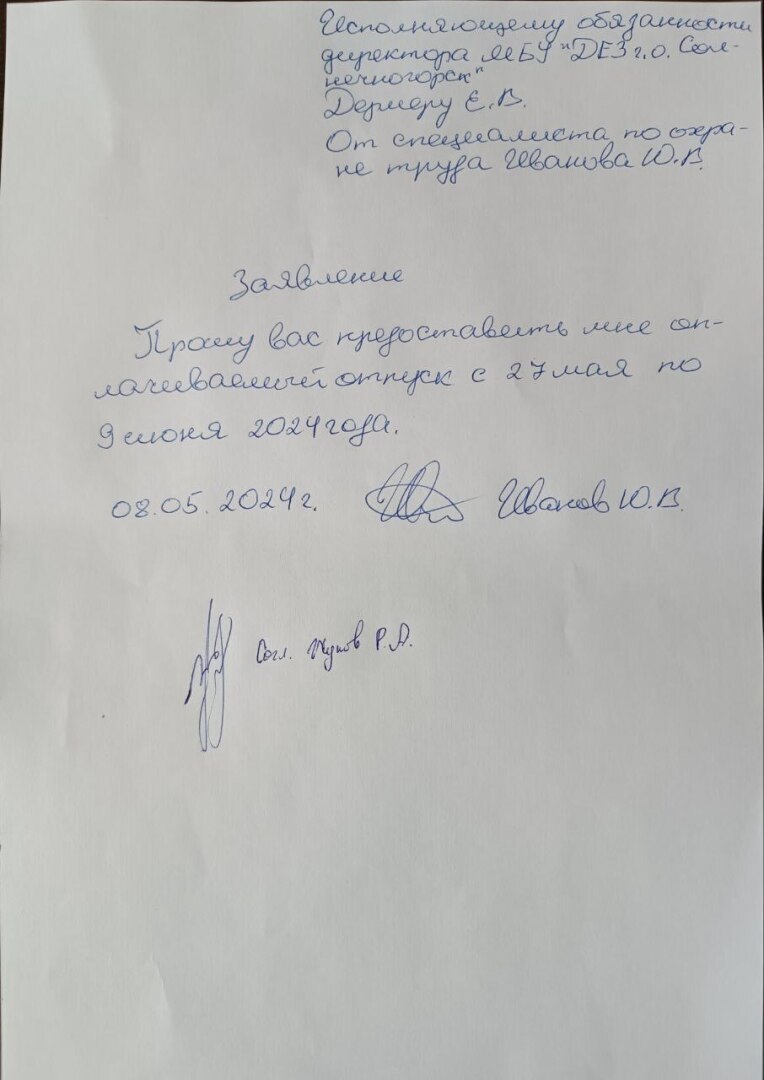 Исполняющему обязанности
директора МБУ "ДЕЗ г.о. Сол-
нечногорск"
Дермеру Е.В.
От специалиста по охра-
не труда Иванова Ю.В.
Заявление
Прошу вас предоставить мне оп-
лачиваемый отпуск с 27 мая по
9 июня 2024 года.
08.05.2024г. Иванов Ю.В.
Согл. Жуков Р.А.